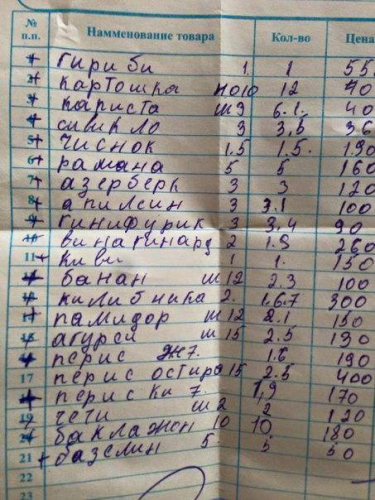 № п.п. Наименование товара Кол-во Цена
1 гириби 1 1 55
2 картошка 12 40
3 каписта ш3 6.1. 40
4 сивикло 3 3,5 36
5 чиснок 1.5 1.5. 190
6 рамана 5 5 160
7 азерберк 3 3 120
8 апилсин 3 3.1 100
9 гинифурик 3 3,4 90
10 винагинард 2 1.9 260
11 киви 1 1. 150
банан ш12 2.3 100
килибника 2. 1.6.7 300
памидор ш12 2.1 150
агурси ш15 2.5 130
перис ж7. 1.6 190
17 перис остиро 15 2.5 400
перис ки 7 1,9 170
19 чети ш2 2 120
20 баклажон 10 10 180
21 базелин 5 5 50
22
23